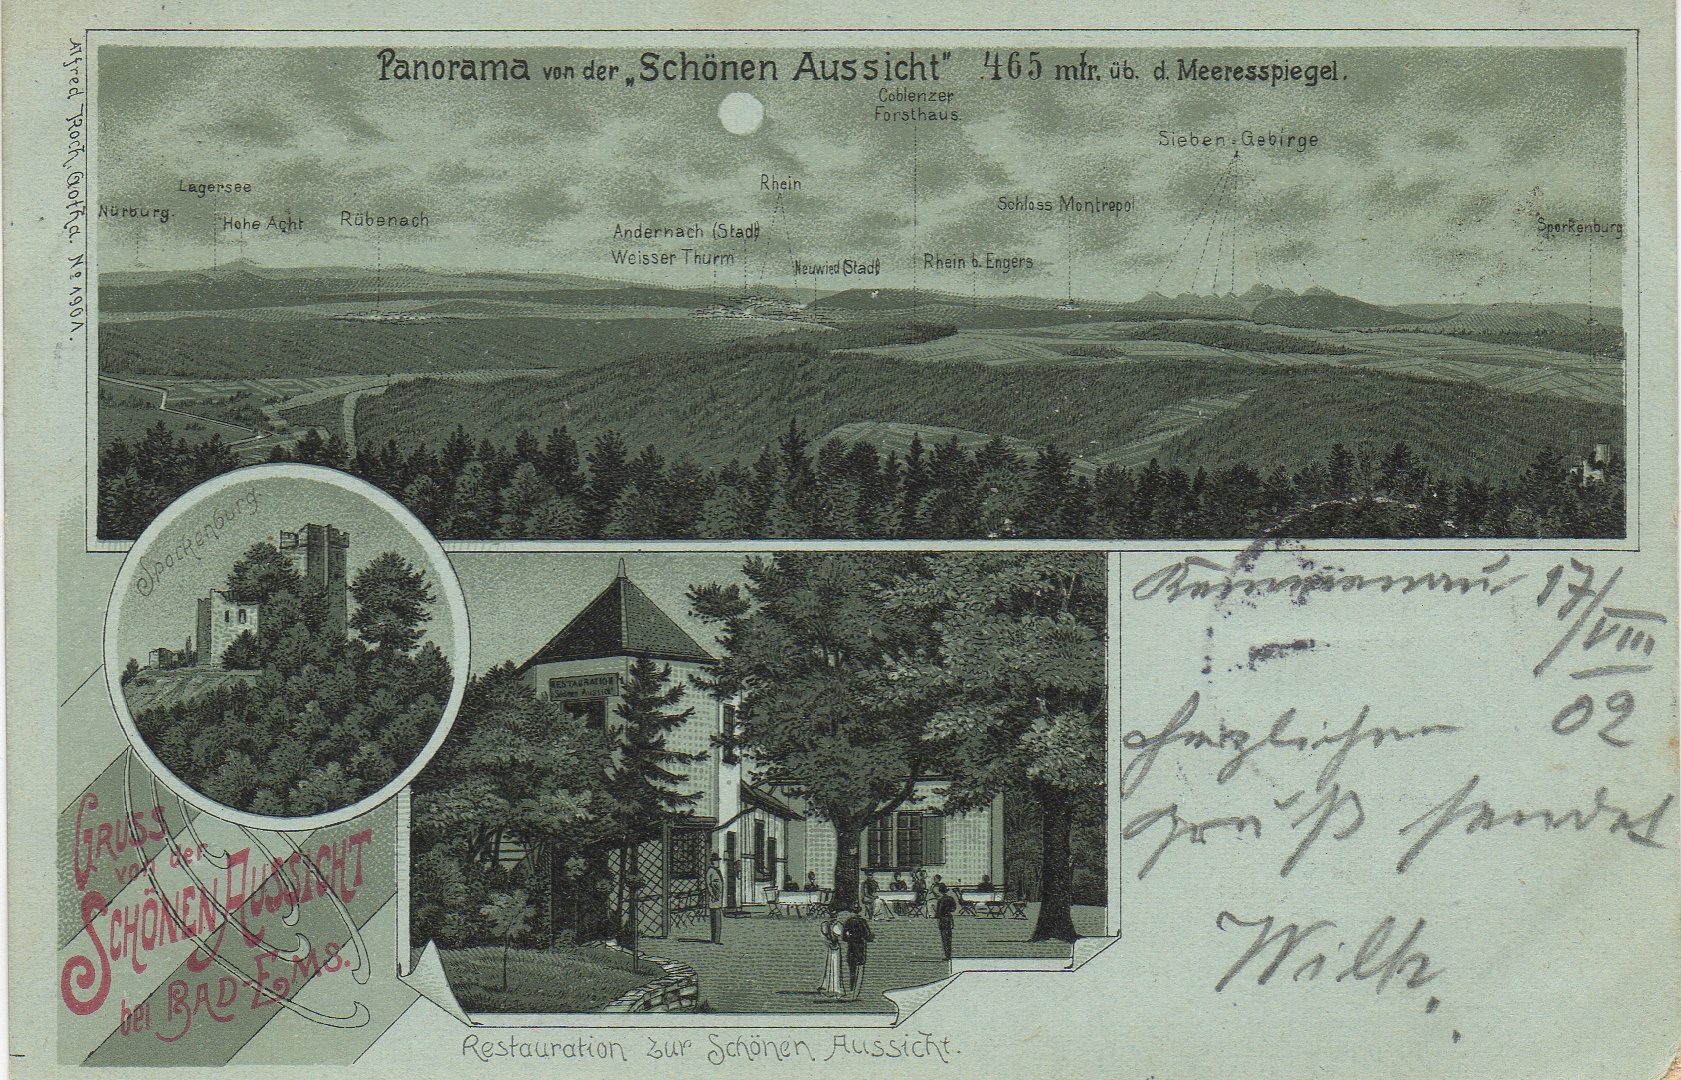 Panorama von der „Schönen Aussicht“ 465 mtr. üb. d. Meeresspiegel.
Coblenzer
Forsthaus.
Sieben-Gebirge
Lagersee
Rhein
Nürburg.
Hohe Acht
Rübenach
Schloss Montrepol
Andernach (Stadt)
Sporkenburg
Weisser Thurm
Neuwied (Stadt)
Rhein b. Engers
Alfred Koch, Gotha. No 1901.
Sporkenburg.
RESTAURATION
Schönen Aussicht
Kemmenau 17/VIII
02
Herzlichen
Gruß sendet
GRUSS
von der
SCHÖNEN AUSSICHT
bei BAD-EMS.
Restauration zur Schönen Aussicht.